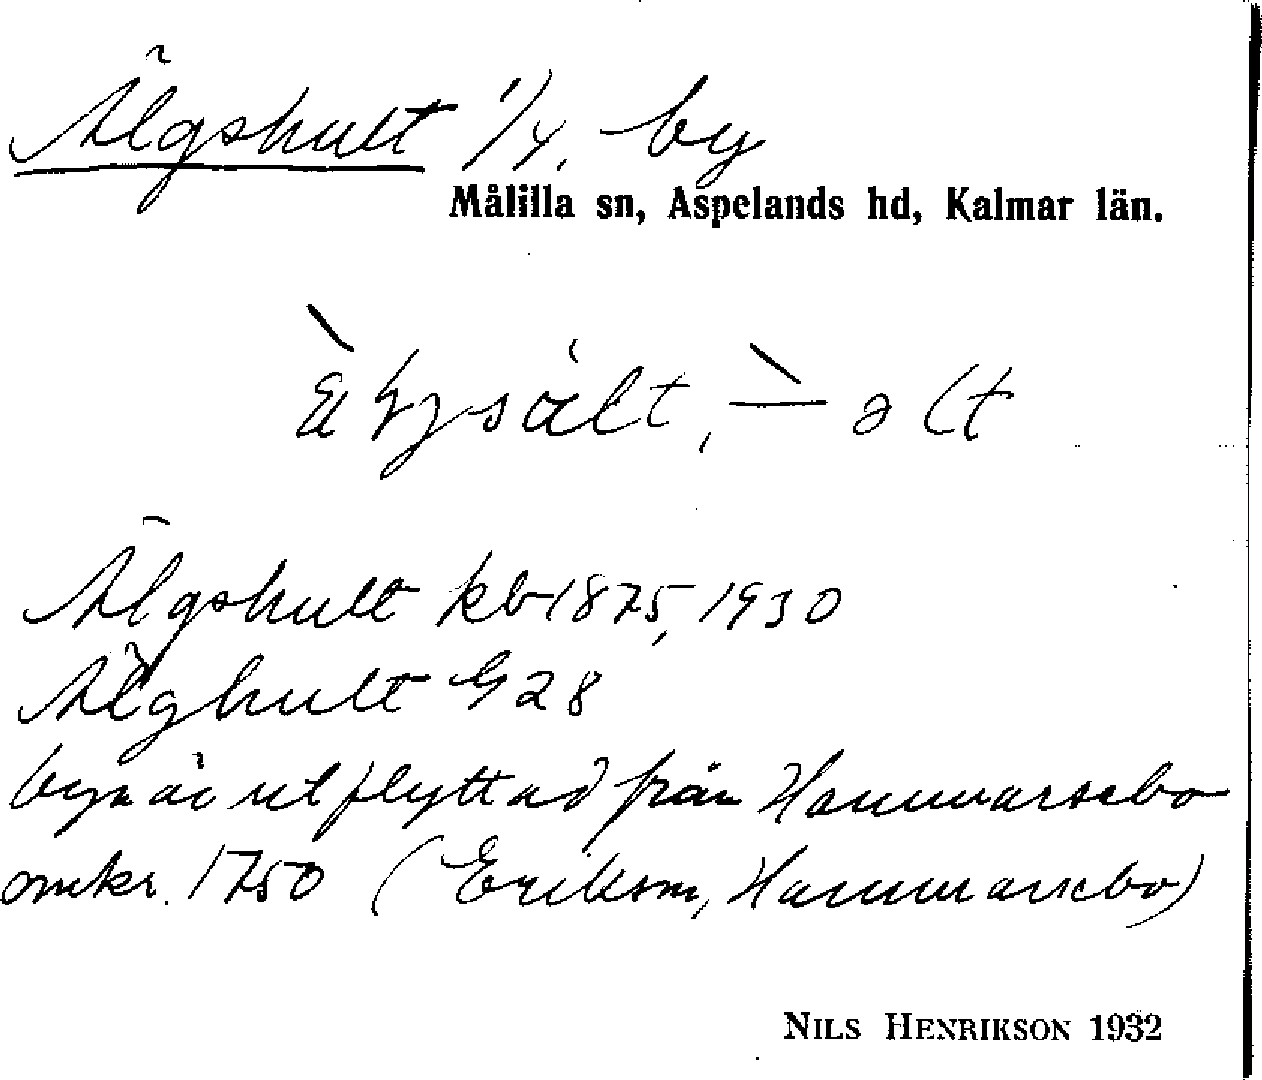 Älgshult 1/4. by
Målilla sn, Aspelands hd, Kalmar län.
Älgshult kb 1875, 1930
Älghult G 28
byn är utflyttad från Hammarsebo
omkr. 1750 (Erikson, Hammarsebo)
NILS HENRIKSON 1932